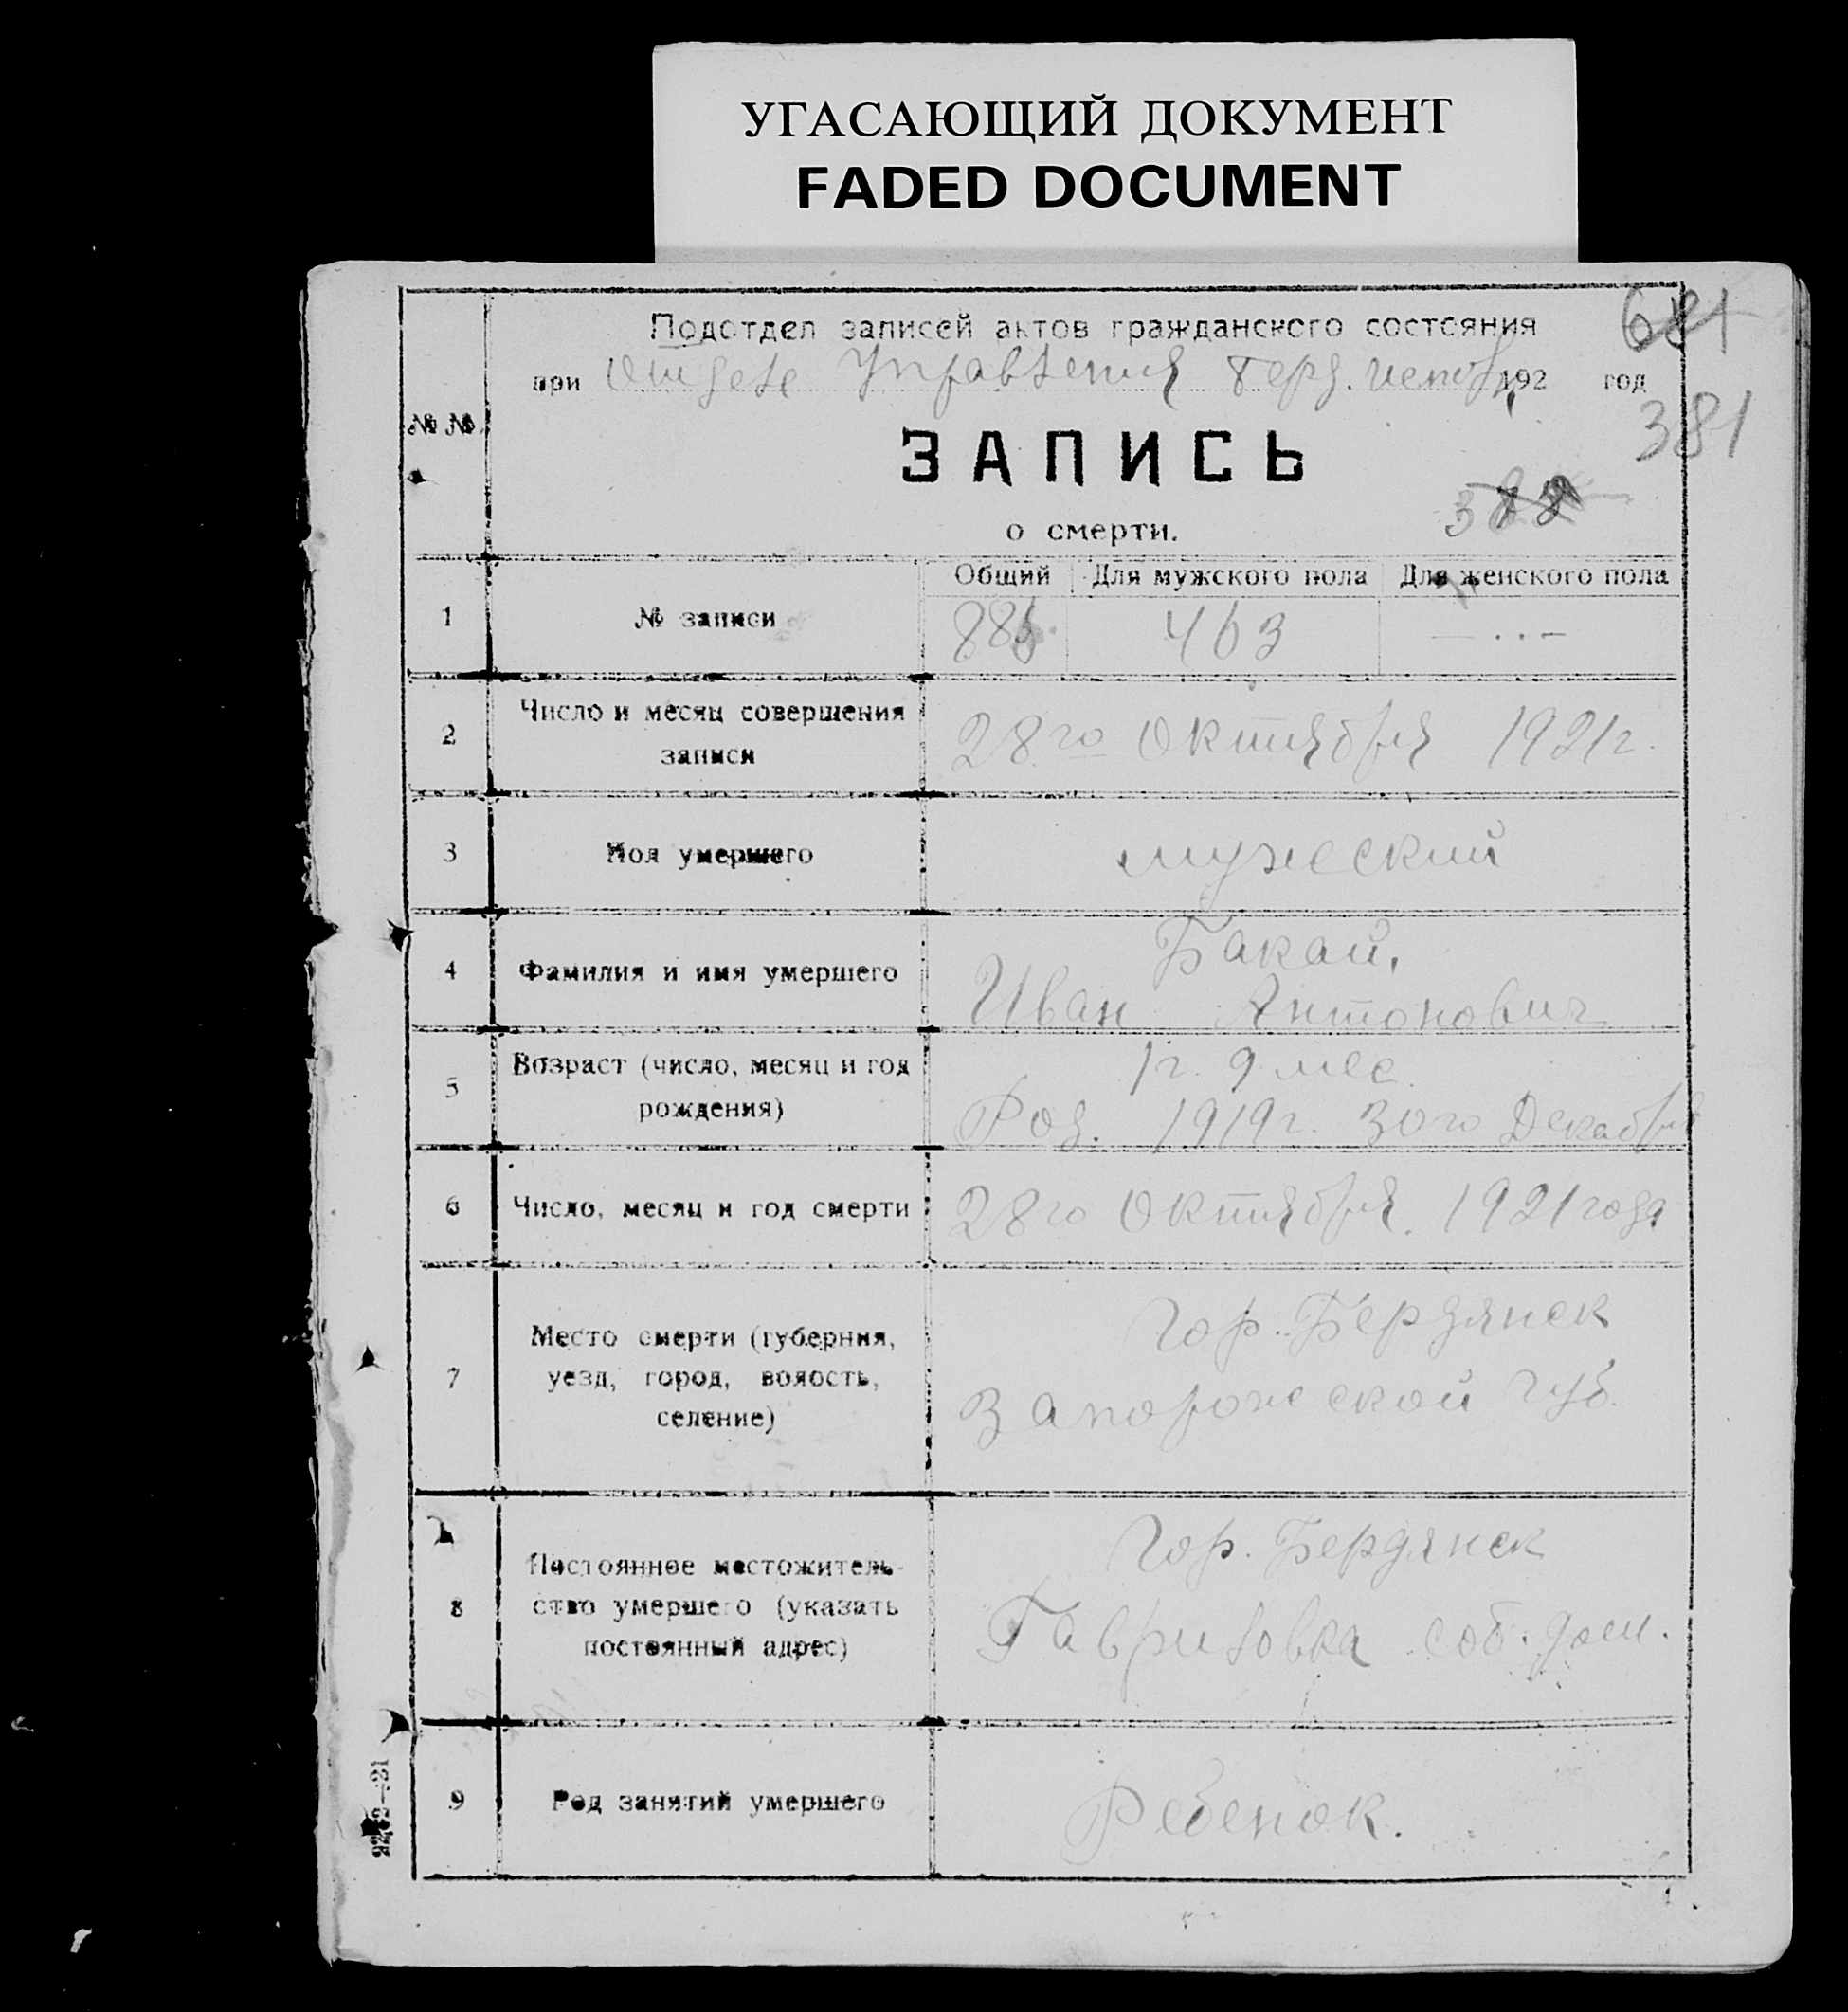 УГАСАЮЩИЙ ДОКУМЕНТ
FADED DOCUMENT
681
Подотдел записей актов гражданского состояния
при Отделе Управления Берд. 192 год
381
№ №
ЗАПИСЬ
388
о смерти.
Общий Для мужского пола Для женского пола
1 № записи 886 463 — · · —
2 Число и месяц совершения
записи
28го Октября 1921г.
3 Пол умершего мужеский
4 Фамилия и имя умершего
Бакай,
Иван Антонович
5 Возраст (число, месяц и год
рождения)
1г. 9 мес.
Род. 1919г. 30го Декабря
6 Число, месяц и год смерти 28го Октября. 1921 года
7 Место смерти (губерния,
уезд, город, волость,
селение)
Гор. Бердянск
Запорожской губ.
8 Постоянное местожитель-
ство умершего (указать
постоянный адрес)
Гор. Бердянск
Гавриловка соб. дом.
9 Род занятий умершего Ребенок.